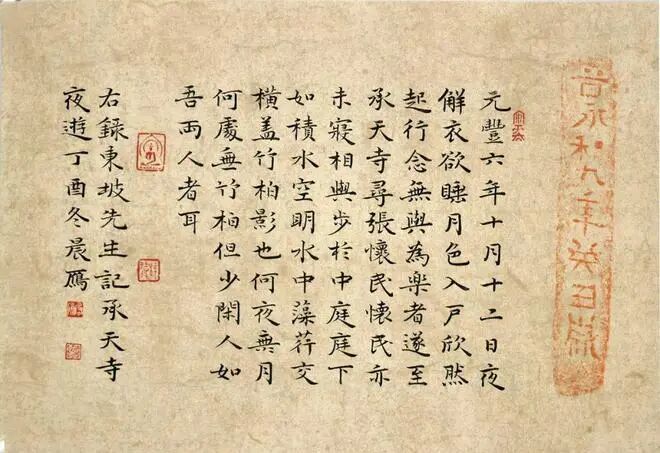 元豐六年十月十二日夜
解衣欲睡月色入戶欣然
起行念無與為樂者遂至
承天寺尋張懷民懷民亦
未寢相與步於中庭庭下
如積水空明水中藻荇交
橫盖竹柏影也何夜無月
何處無竹柏但少閑人如
吾兩人者耳
右錄東坡先生記承天寺
夜遊丁酉冬晨鴈